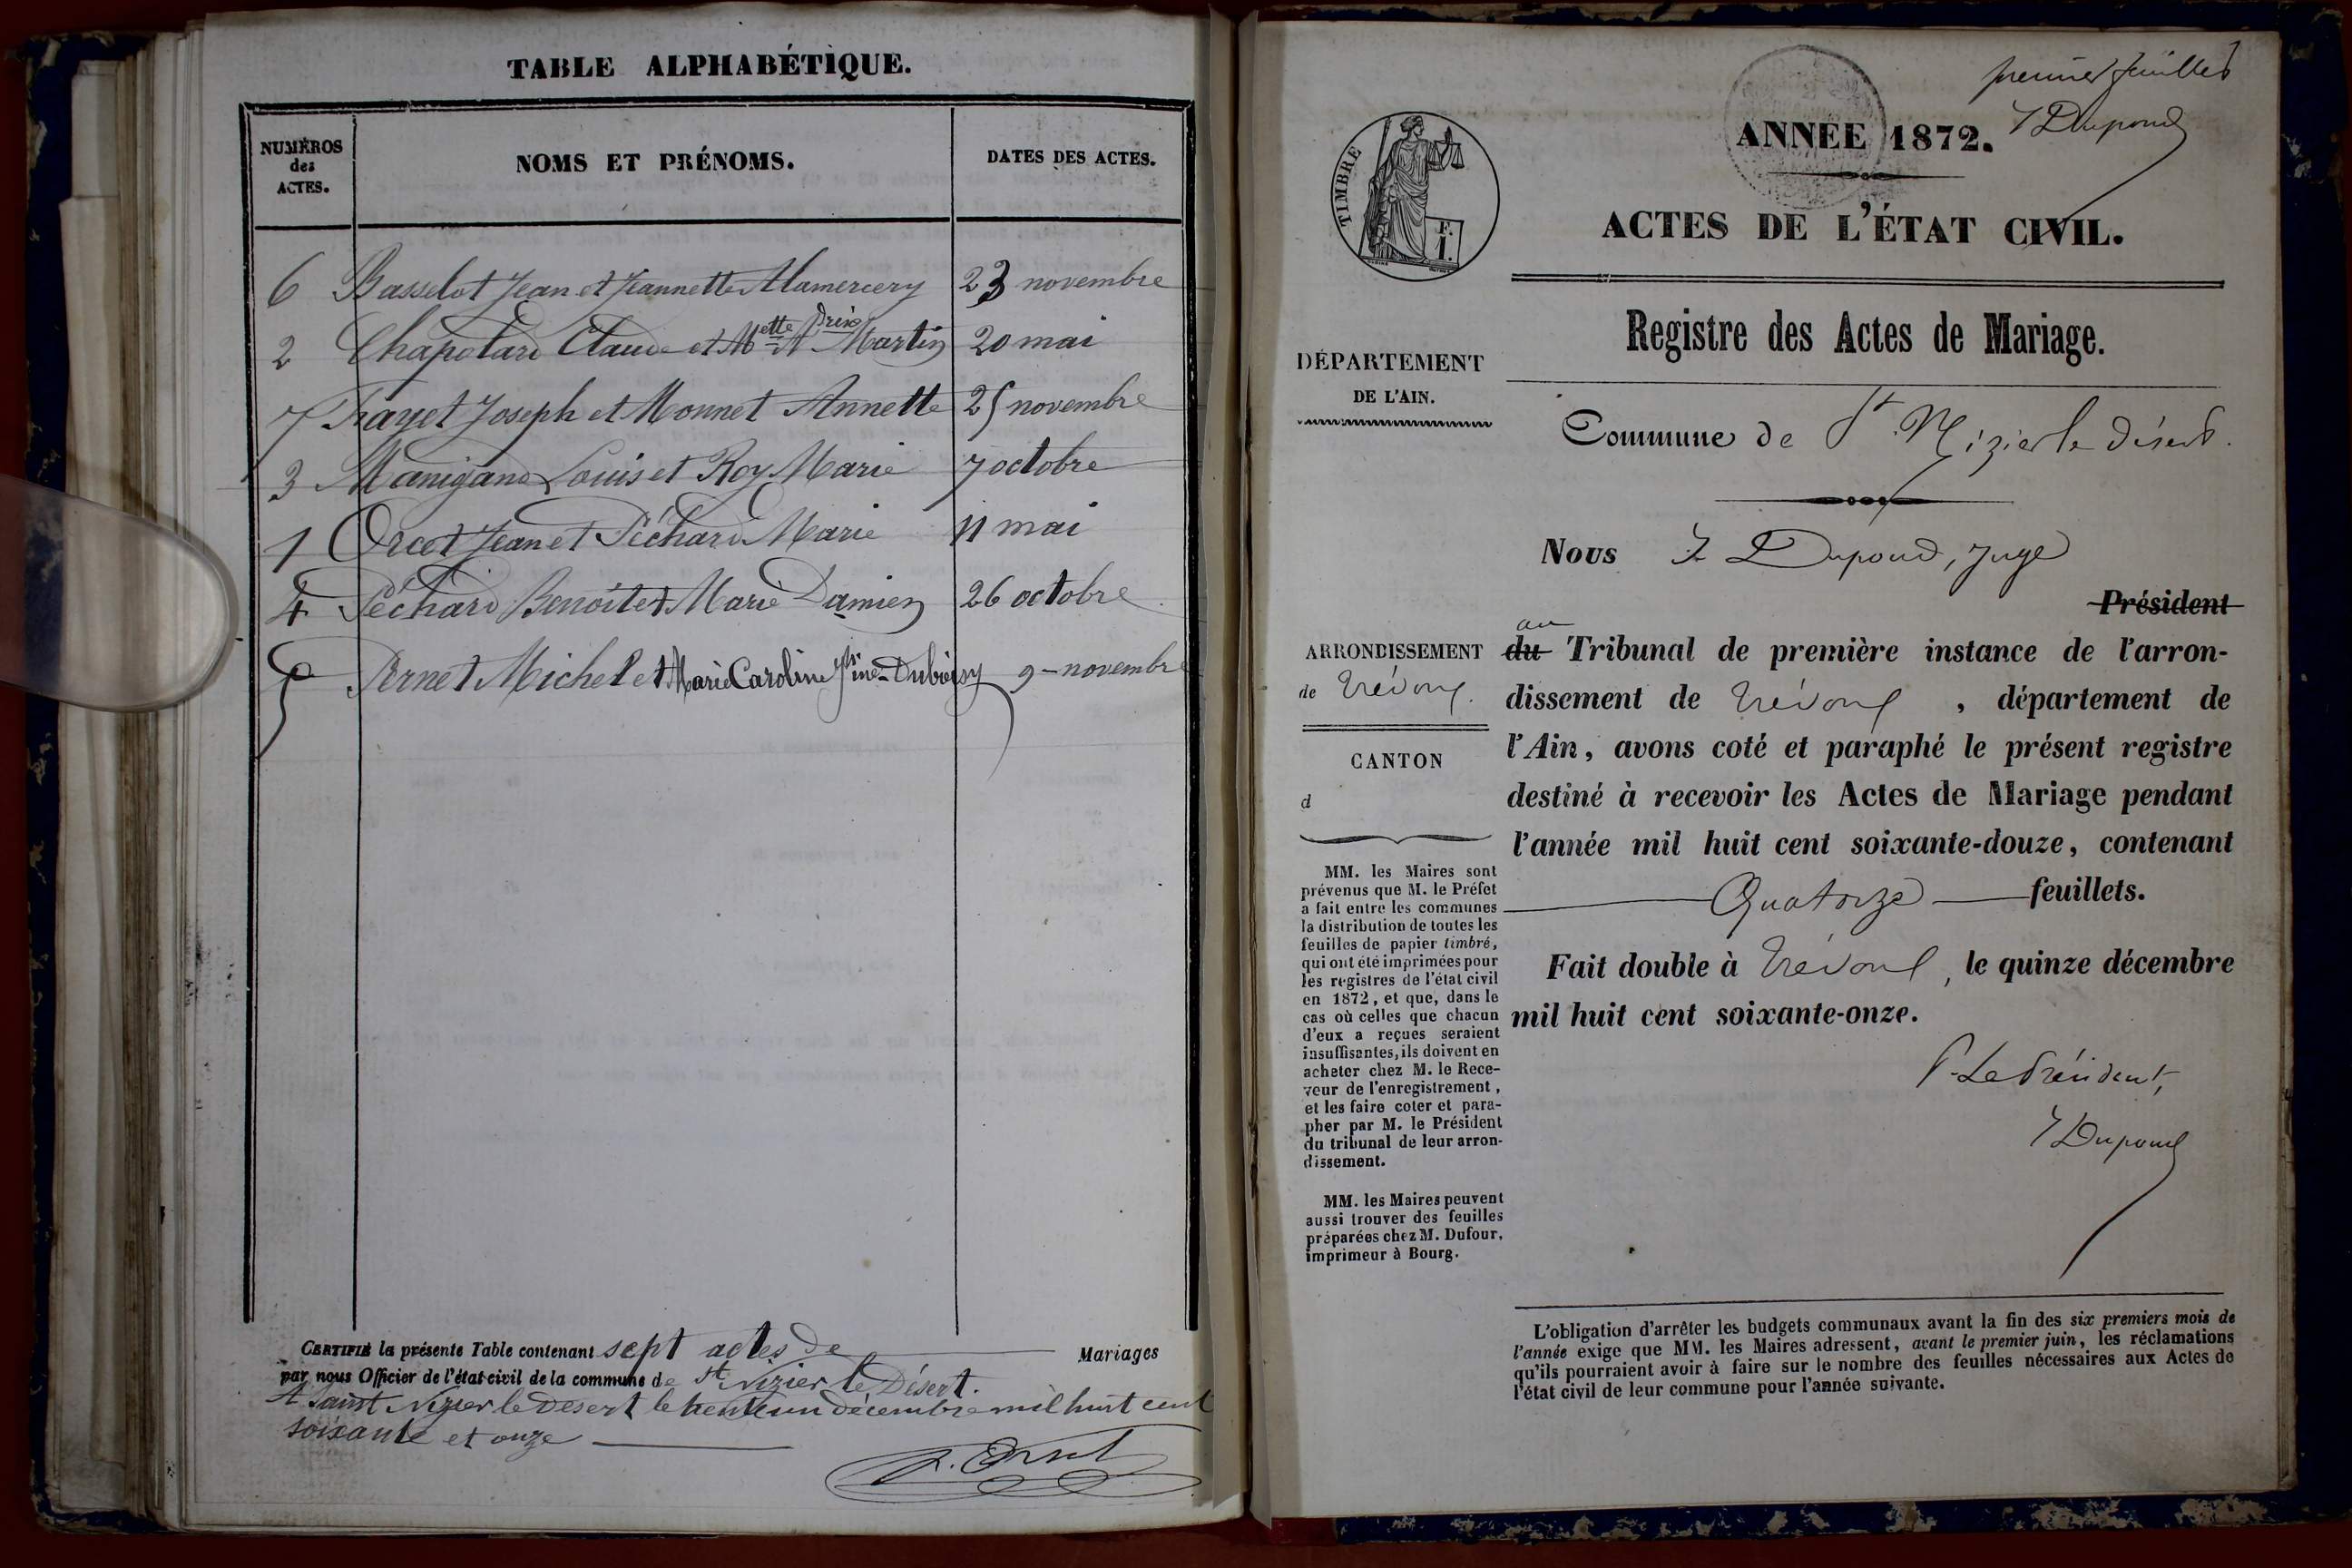 TABLE ALPHABÉTIQUE.
NUMÉROS des ACTES.
NOMS ET PRÉNOMS.
DATES DES ACTES.
6 Basselot Jean et Jeannette Alamercery 23 novembre
2 Chapolard Claude et Mette Martin 20 mai
7 Frayet Joseph et Monnet Annette 25 novembre
3 Manigand Louis et Roy Marie 7 octobre
1 Orcet Jean et Péchard Marie 11 mai
4 Péchard Benoit et Marie Damien 26 octobre
5 Pernet Michel et Marie Caroline 9 novembre
CERTIFIÉ la présente Table contenant sept actes de Mariages
par nous Officier de l'état civil de la commune de St Nizier le Désert.
A Saint Nizier le Désert le trente un décembre mil huit cent
soixante et onze
premier feuillet
J Dupond
TIMBRE
F.
1.
ANNEE 1872.
ACTES DE L'ÉTAT CIVIL.
Registre des Actes de Mariage.
DÉPARTEMENT
DE L'AIN.
Commune de St Nizier le désert.
Nous J Dupond, Juge
Président
au
ARRONDISSEMENT
de Trévoux.
CANTON
d
du Tribunal de première instance de l'arron-
dissement de Trévoux, département de
l'Ain, avons coté et paraphé le présent registre
destiné à recevoir les Actes de Mariage pendant
l'année mil huit cent soixante-douze, contenant
Quatorze feuillets.
Fait double à Trévoux, le quinze décembre
mil huit cent soixante-onze.
P. Le Président,
J Dupond
MM. les Maires sont
prévenus que M. le Préfet
a fait entre les communes
la distribution de toutes les
feuilles de papier timbré,
qui ont été imprimées pour
les registres de l'état civil
en 1872, et que, dans le
cas où celles que chacun
d'eux a reçues seraient
insuffisantes, ils doivent en
acheter chez M. le Rece-
veur de l'enregistrement,
et les faire coter et para-
pher par M. le Président
du tribunal de leur arron-
dissement.
MM. les Maires peuvent
aussi trouver des feuilles
préparées chez M. Dufour,
imprimeur à Bourg.
L'obligation d'arrêter les budgets communaux avant la fin des six premiers mois de
l'année exige que MM. les Maires adressent, avant le premier juin, les réclamations
qu'ils pourraient avoir à faire sur le nombre des feuilles nécessaires aux Actes de
l'état civil de leur commune pour l'année suivante.